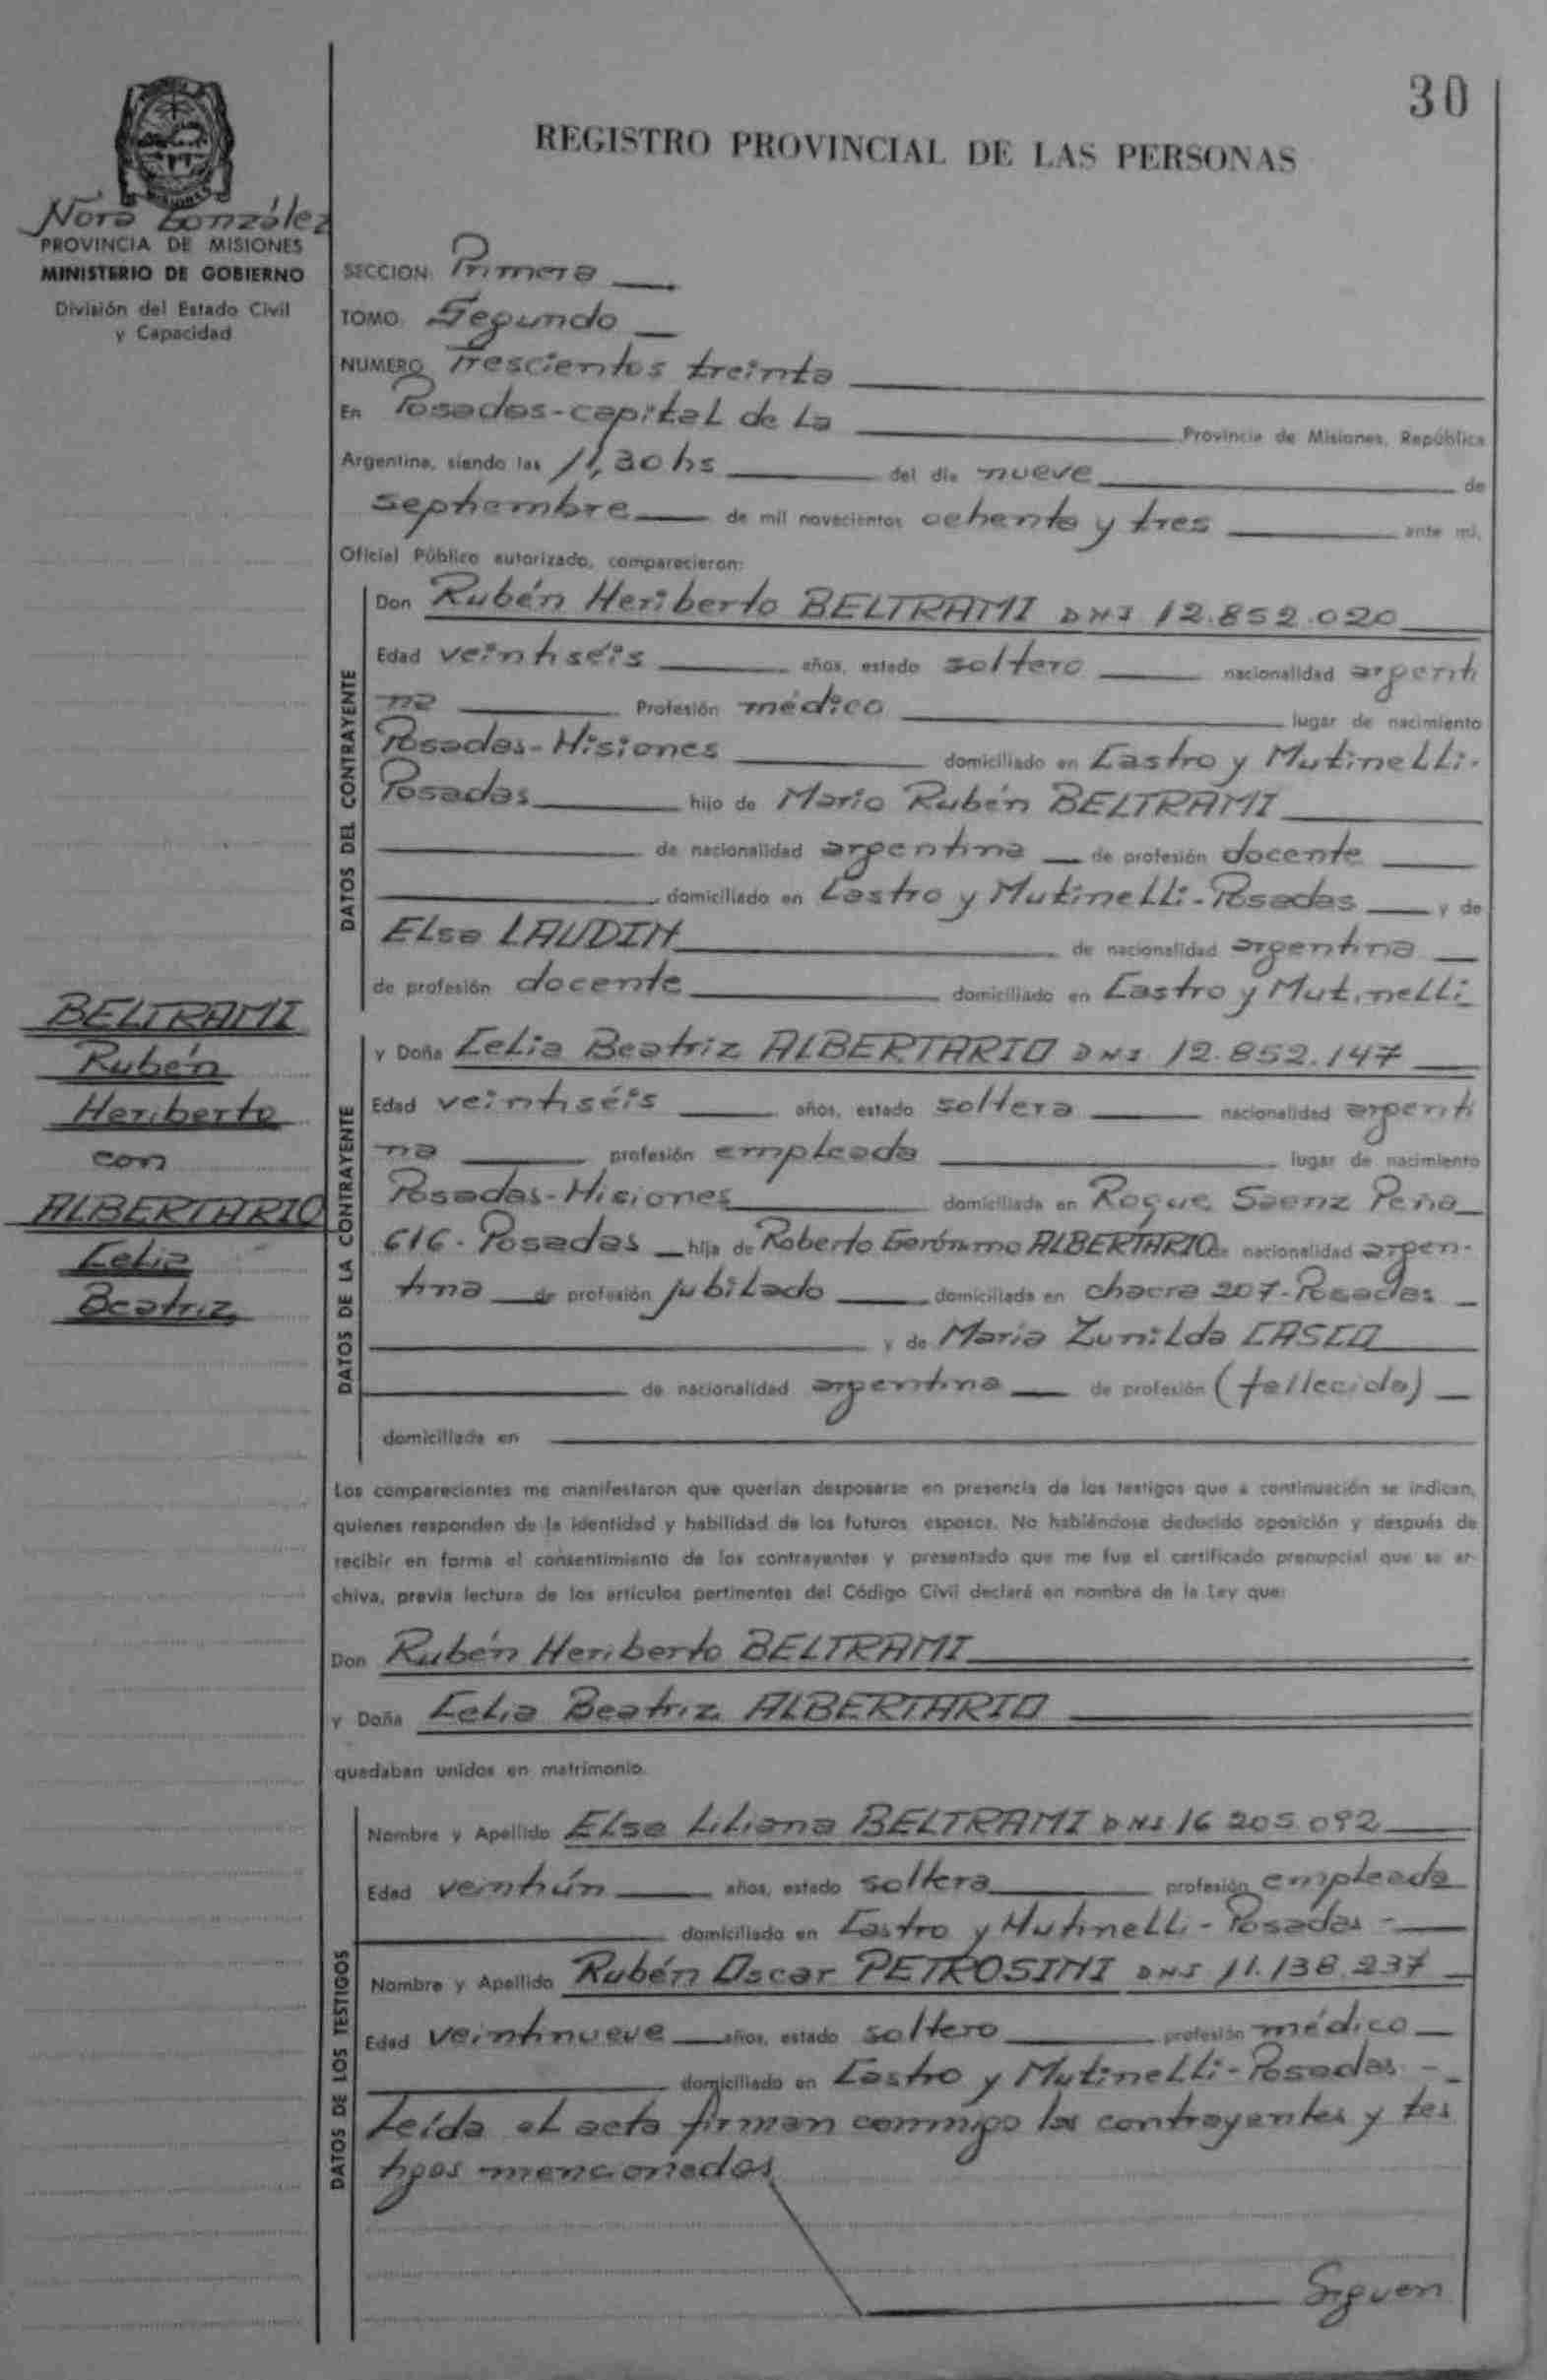 30
REGISTRO PROVINCIAL DE LAS PERSONAS
MISIONES
Nora González
PROVINCIA DE MISIONES
MINISTERIO DE GOBIERNO
División del Estado Civil
y Capacidad
SECCION: Primera
TOMO: Segundo
NUMERO Trescientos treinta
En Posadas-capital de la Provincia de Misiones, República
Argentina, siendo las 11,30 hs del día nueve de
septiembre de mil novecientos ochenta y tres ante mí,
Oficial Público autorizado, comparecieron:
DATOS DEL CONTRAYENTE
Don Rubén Heriberto BELTRAMI DNI 12.852.020
Edad veintiséis años, estado soltero nacionalidad argenti
na Profesión médico lugar de nacimiento
Posadas-Misiones domiciliado en Castro y Mutinelli-
Posadas hijo de Mario Rubén BELTRAMI
de nacionalidad argentina de profesión docente
domiciliado en Castro y Mutinelli-Posadas y de
Elsa LAUDIN de nacionalidad argentina
de profesión docente domiciliado en Castro y Mutinelli
BELTRAMI
Rubén
Heriberto
con
ALBERTARIO
Celia
Beatriz
DATOS DE LA CONTRAYENTE
y Doña Celia Beatriz ALBERTARIO DNI 12.852.147
Edad veintiséis años, estado soltera nacionalidad argenti
na profesión empleada lugar de nacimiento
Posadas-Misiones domiciliada en Roque Saenz Peña
616-Posadas hija de Roberto Gerónimo ALBERTARIO de nacionalidad argen-
tina de profesión jubilado domiciliada en chacra 207-Posadas
y de María Zunilda CASCO
de nacionalidad argentina de profesión (fallecida)
domiciliada en
Los comparecientes me manifestaron que querían desposarse en presencia de los testigos que a continuación se indican,
quienes responden de la identidad y habilidad de los futuros esposos. No habiéndose deducido oposición y después de
recibir en forma el consentimiento de los contrayentes y presentado que me fue el certificado prenupcial que se ar-
chiva, previa lectura de los artículos pertinentes del Código Civil declaré en nombre de la Ley que:
Don Rubén Heriberto BELTRAMI
y Doña Celia Beatriz ALBERTARIO
quedaban unidos en matrimonio.
DATOS DE LOS TESTIGOS
Nombre y Apellido Elsa Liliana BELTRAMI DNI 16 205.092
Edad veintiún años, estado soltera profesión empleada
domiciliado en Castro y Mutinelli-Posadas-
Nombre y Apellido Rubén Oscar PETROSINI DNI 11.138.237
Edad veintinueve años, estado soltero profesión médico
domiciliado en Castro y Mutinelli-Posadas-
Leída el acta firman conmigo los contrayentes y tes
tigos mencionados
Siguen